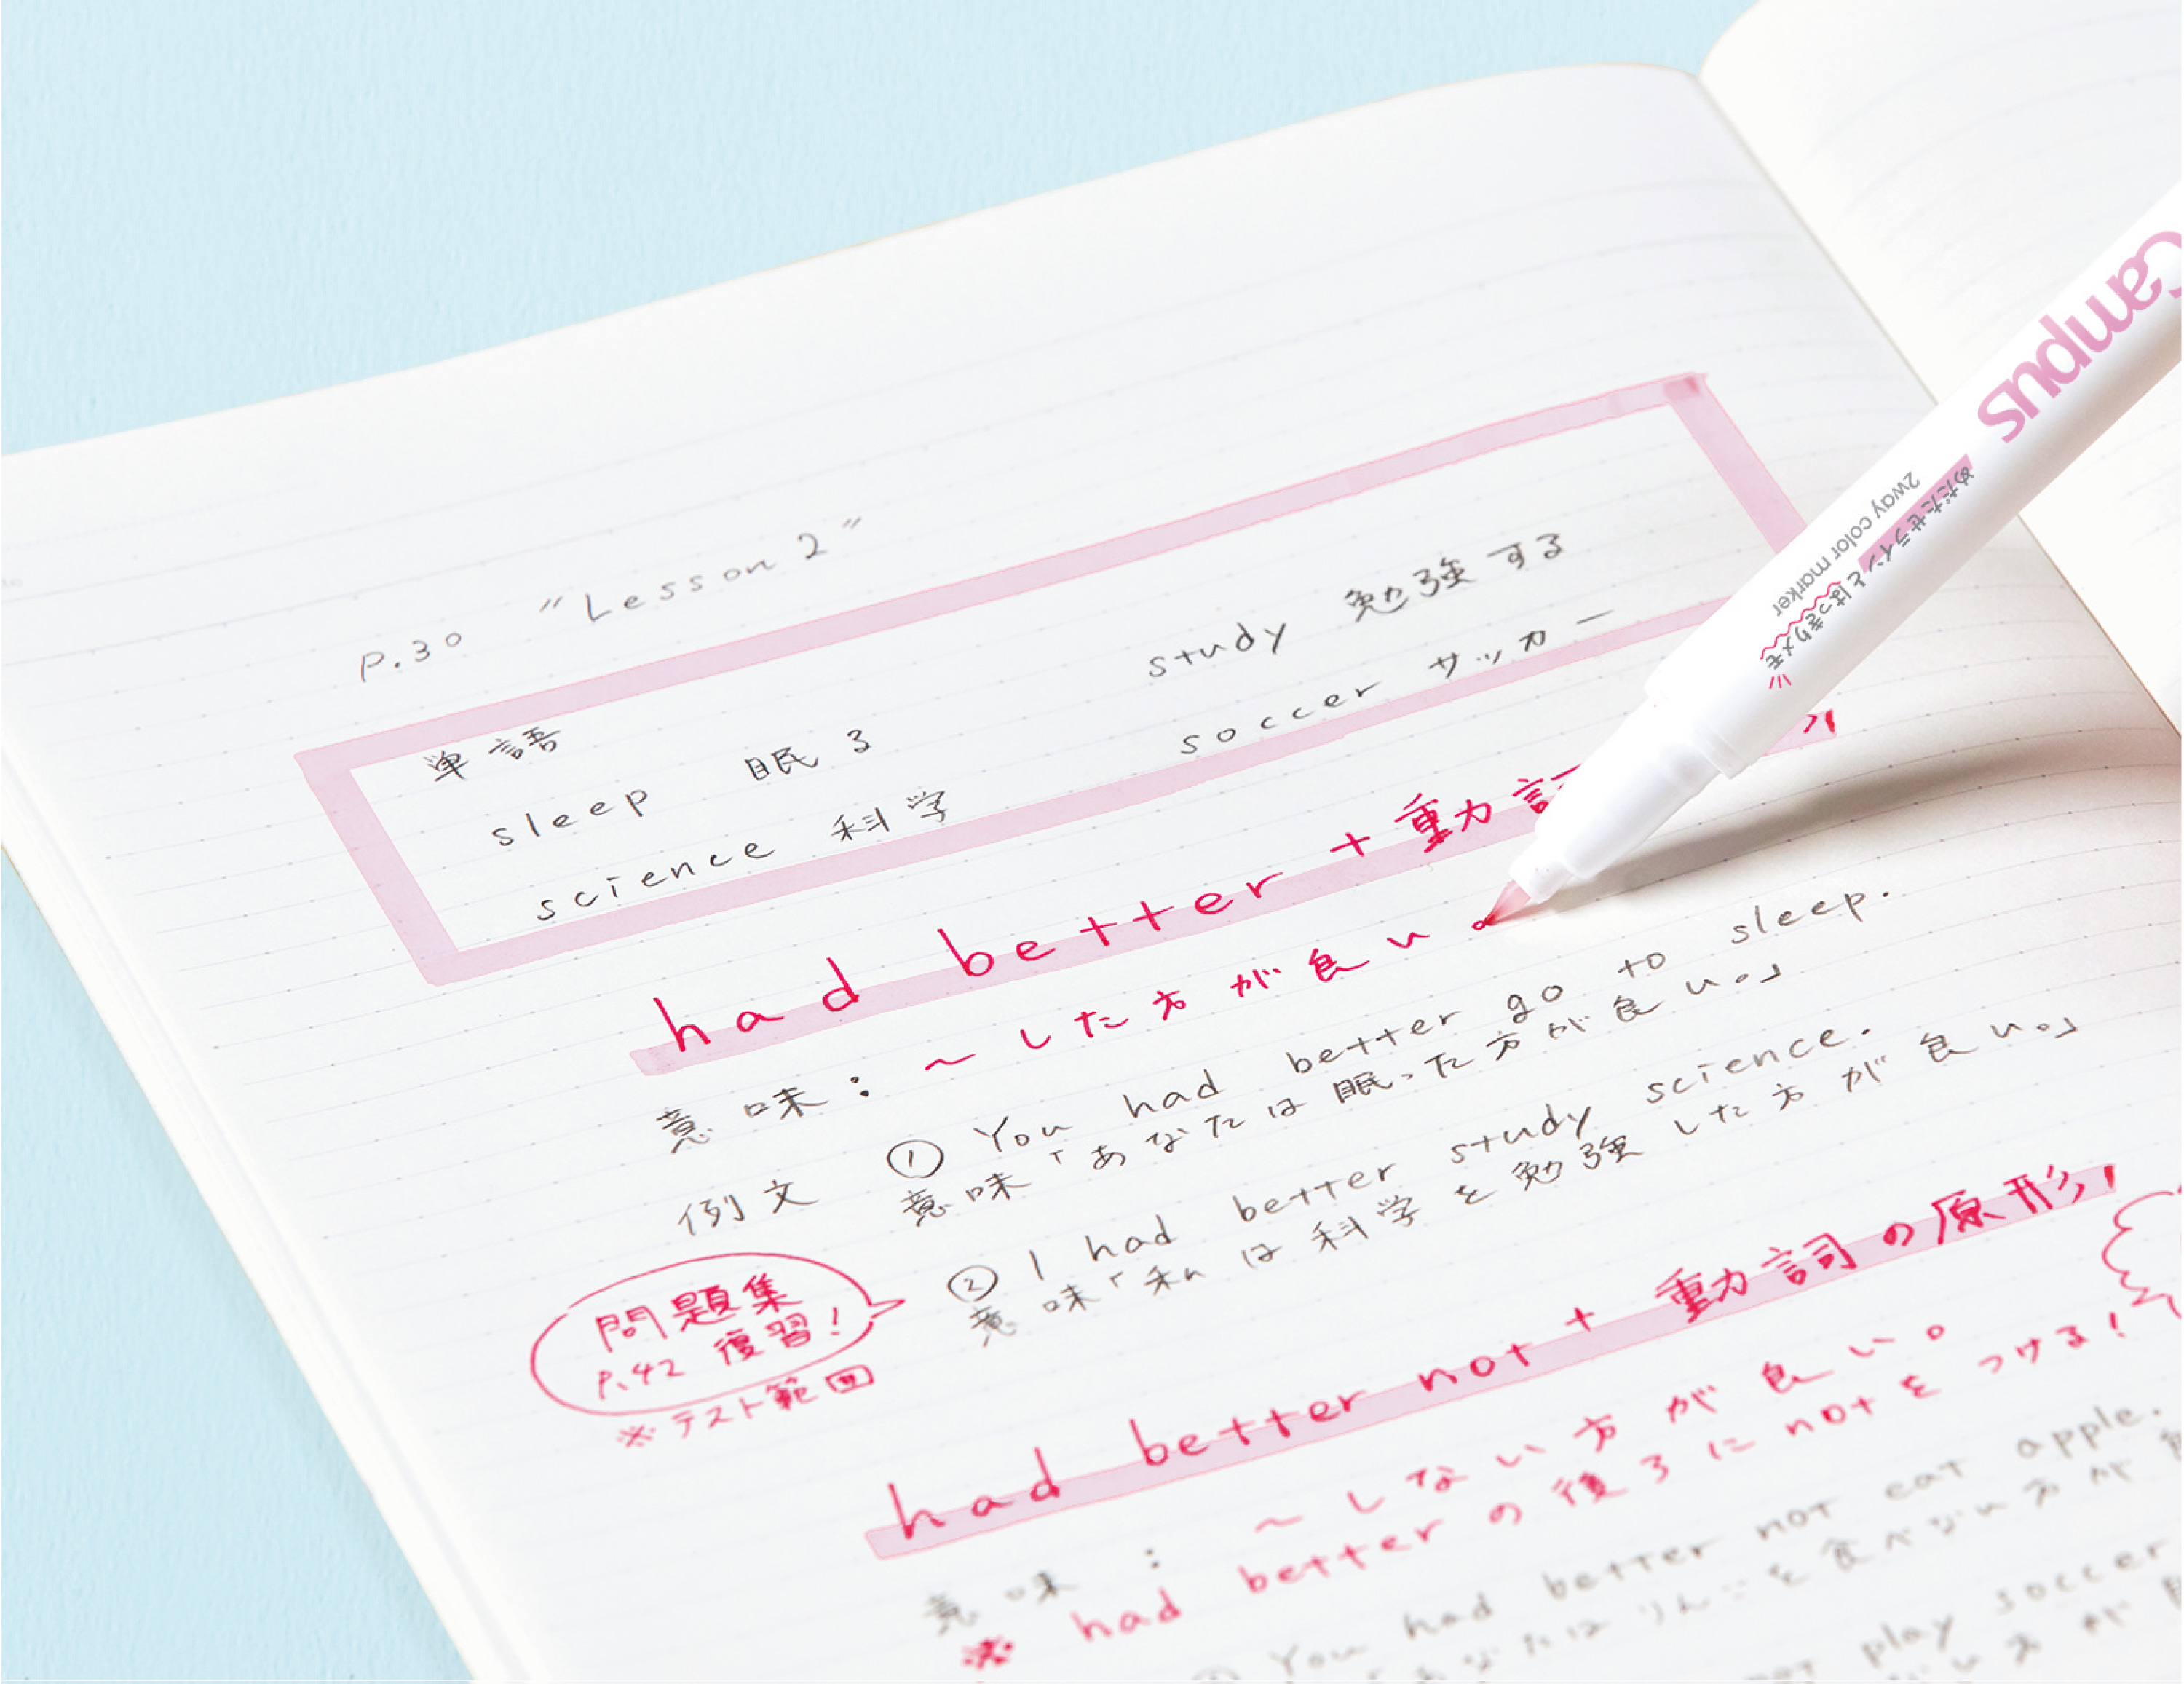 P.30 "Lesson 2"
単語
sleep 眠る
science 科学
study 勉強する
soccer サッカー
had better + 動詞
意味： ～した方が良い。
例文 ① You had better go to sleep.
意味「あなたは眠った方が良い。」
② I had better study science.
意味「私は科学を勉強した方が良い。」
問題集
P.42 復習!
※テスト範囲
had better not + 動詞の原形
意味： ～しない方が良い。
※ had betterの後ろにnotをつける!
You had better not eat apple.
あなたはりんごを食べない方が
not play soccer
Campus
めだたせラインとはっきりメモ
2way color marker